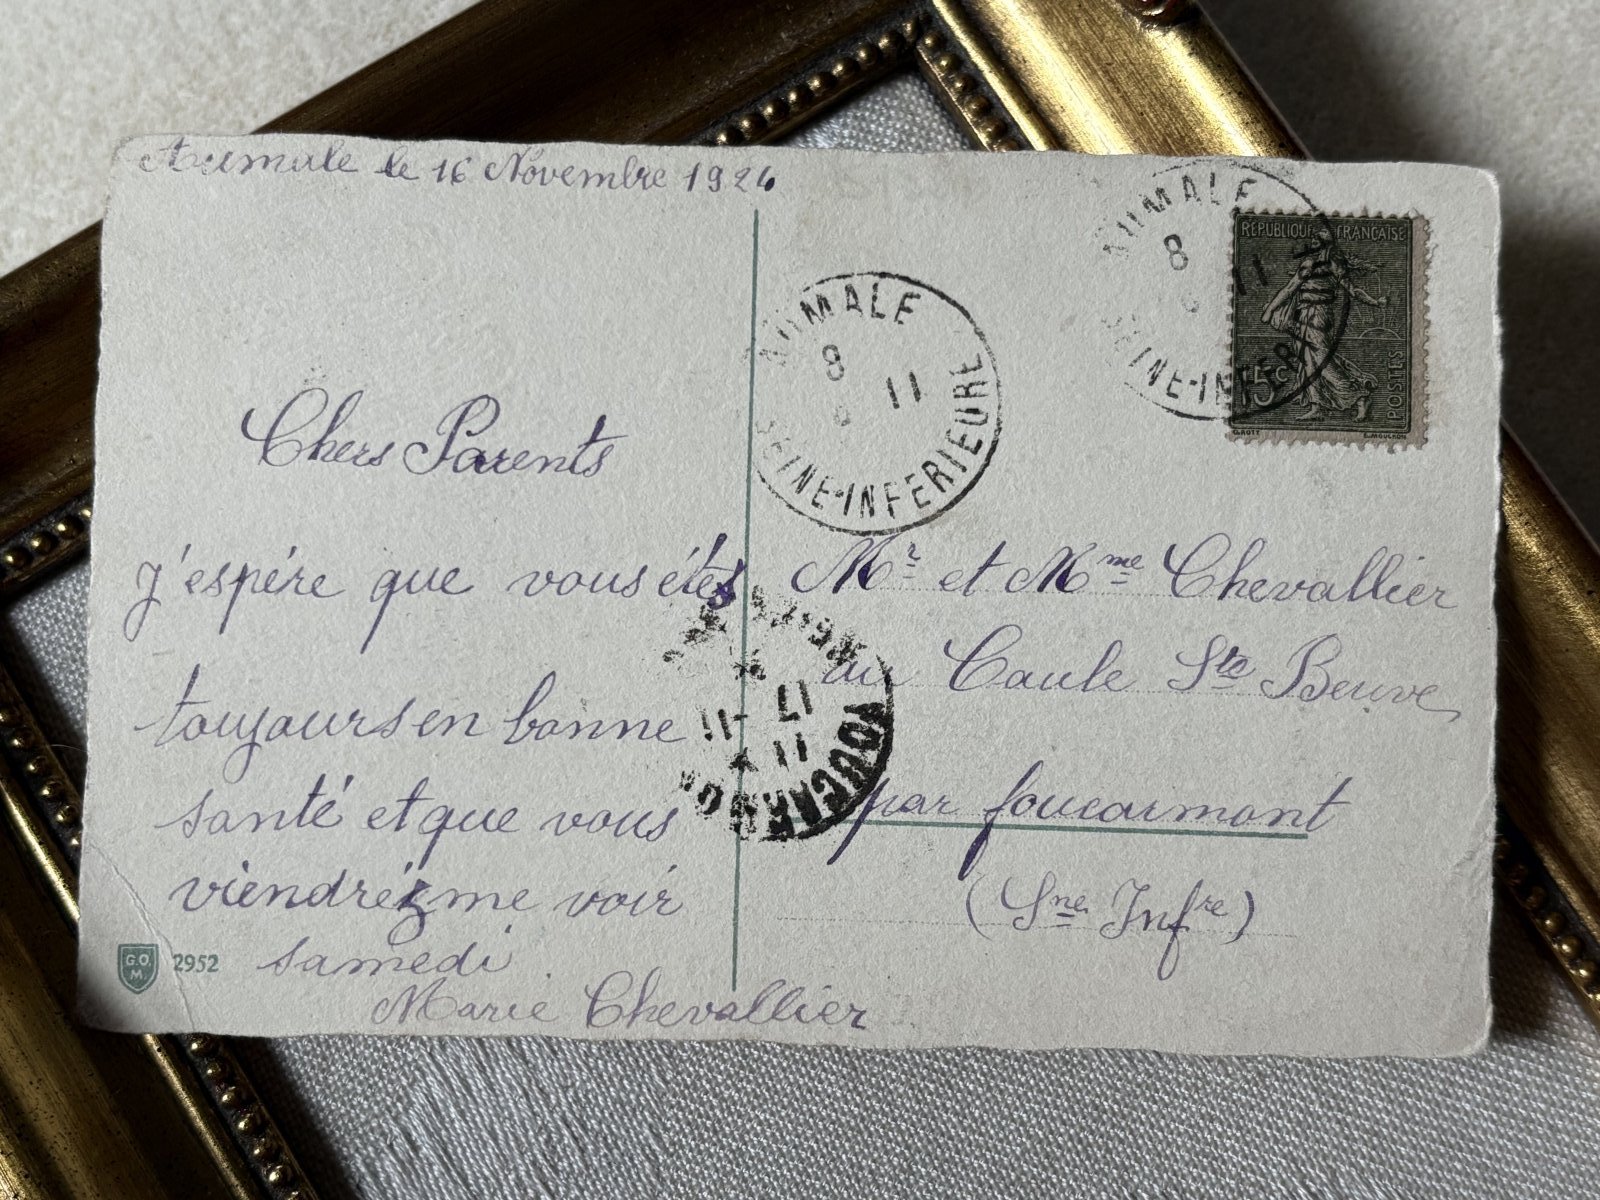 Aumale le 16 Novembre 1924
Chers Parents
j'espére que vous étes
toujours en bonne
santé et que vous
viendréz me voir
samedi
Marie Chevallier
G.O.
M.
2952
AUMALE
8 11
SEINE-INFERIEURE
AUMALE
8 11
SEINE-INFERIEURE
REPUBLIQUE FRANÇAISE
15c
POSTES
O.ROTY E.MOUCHON
17 -11
11
FOUCARMONT
Mr et Mme Chevallier
au Caule Ste Beuve
par foucarmont
(Sne Infre)